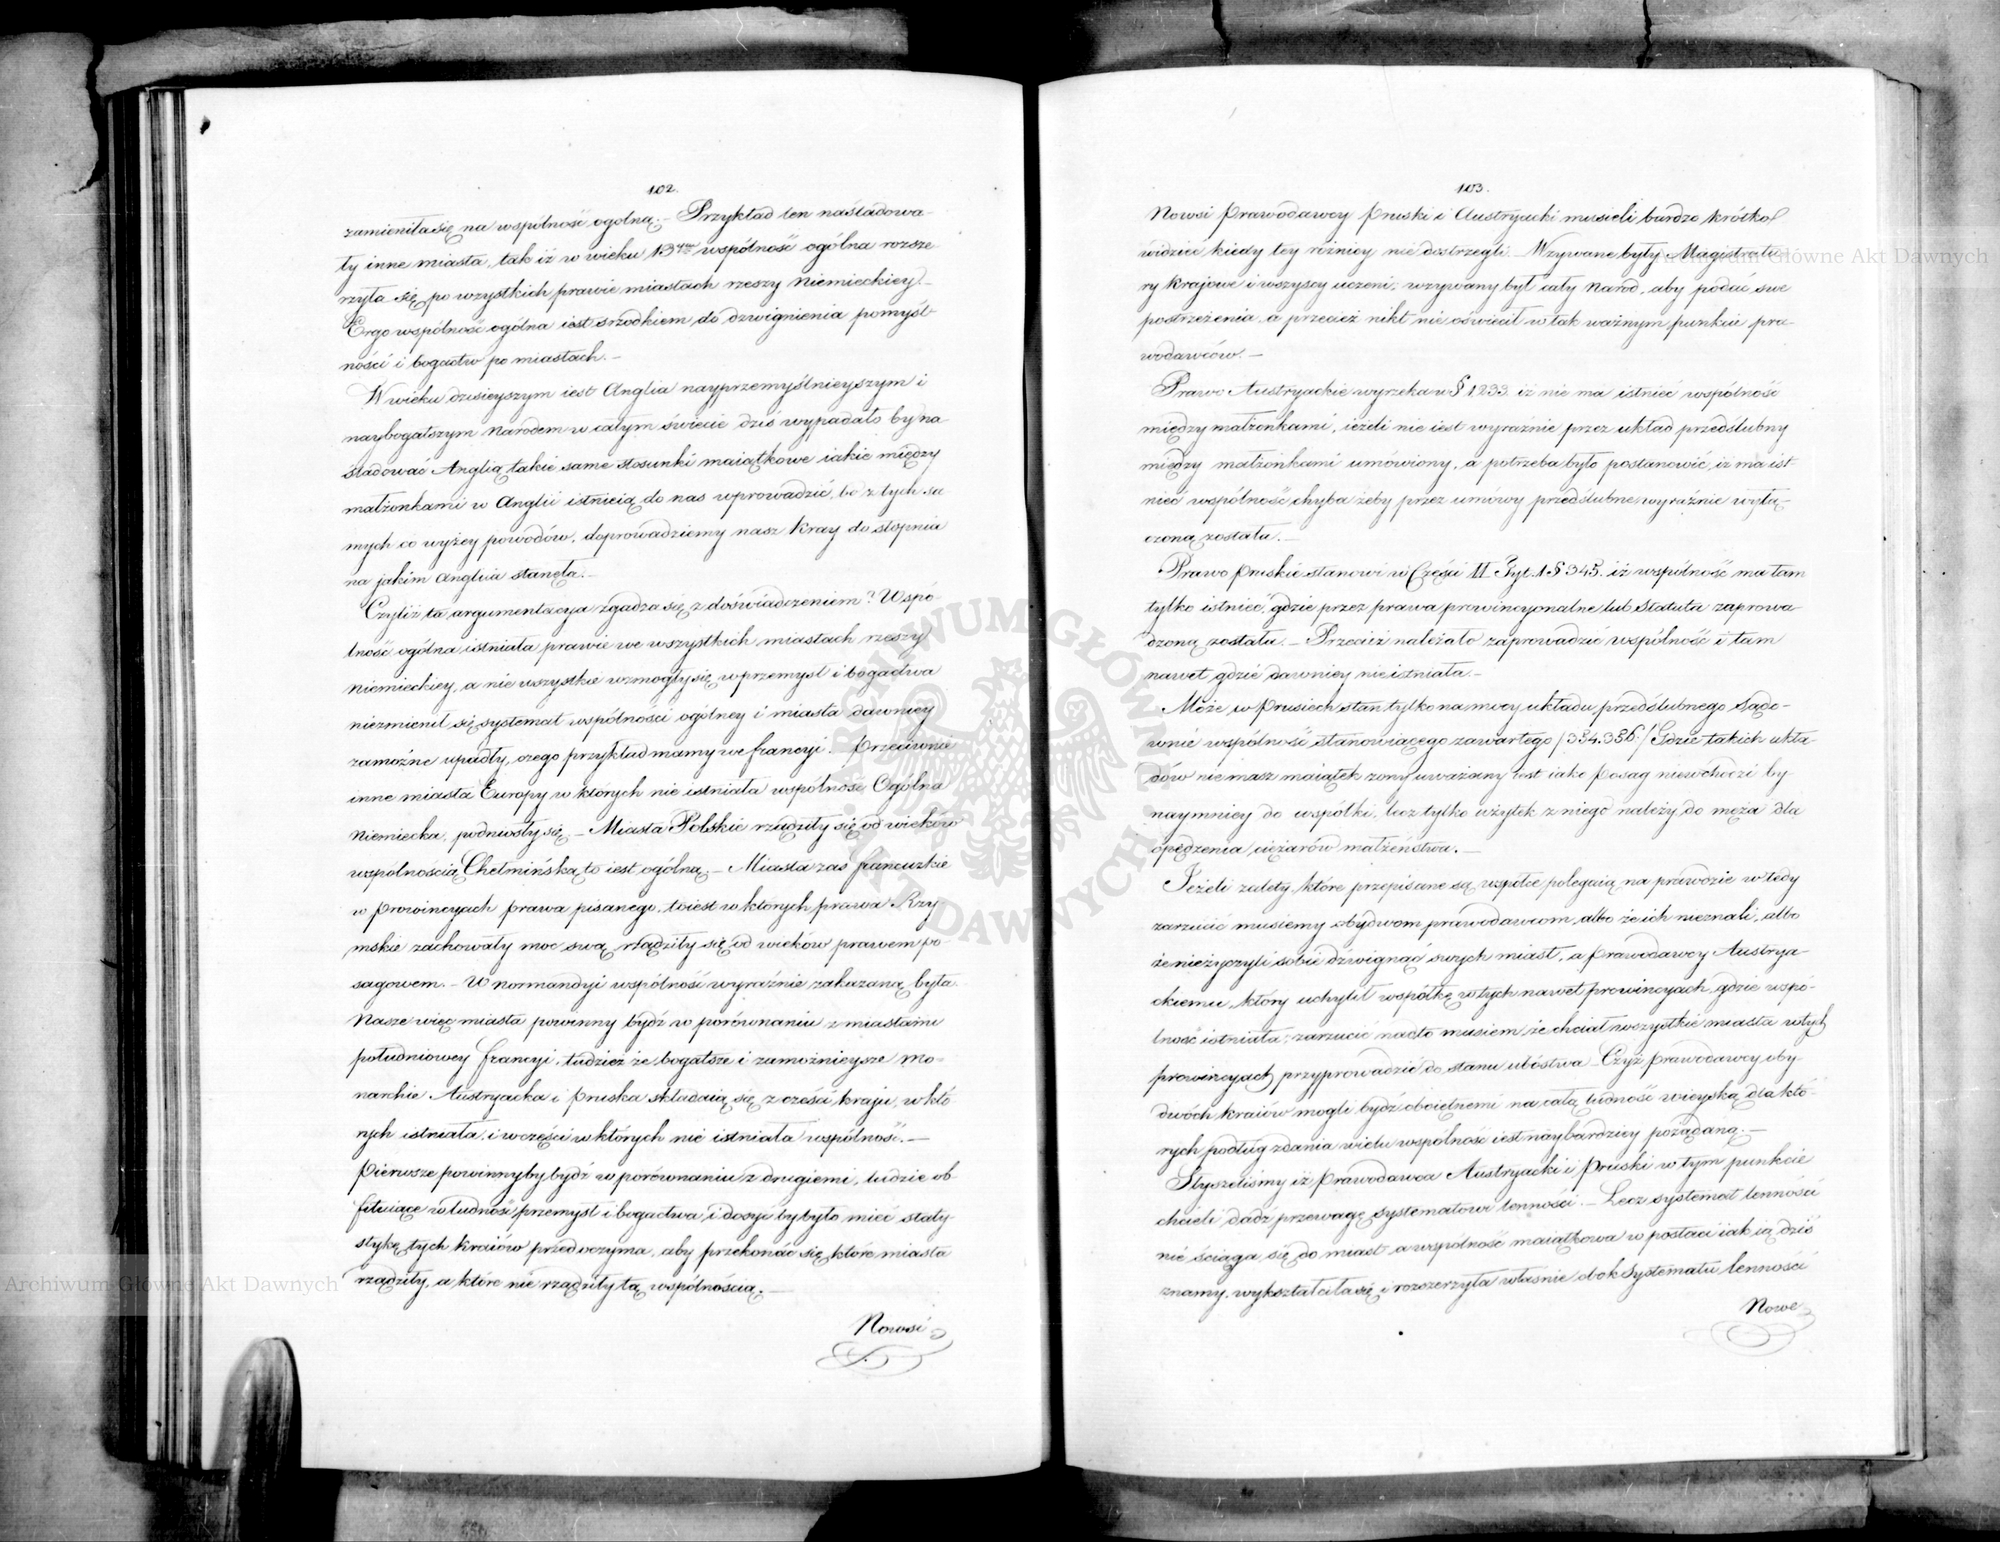 102.
zamieniła się na wspólność ogólną. – Przykład ten naśladowa-
ły inne miasta, tak iż w wieku 13tym wspólność ogólna rozsze
rzyła się po wszystkich prawie miastach rzeszy Niemieckiey. –
Ergo wspólność ogólna iest srzodkiem do dzwignienia pomyśl-
ności i bogactw po miastach. –
W wieku dzisieyszym iest Anglia nayprzemyślnieyszym i
naybogatszym Narodem w całym świecie, dziś wypadało by na
śladować Anglią, takie same stosunki maiątkowe iakie między
małżonkami w Anglii istnieią do nas wprowadzić, bo z tych sa
mych co wyżey powodów, doprowadziemy nasz Kray do stopnia
na jakim Anglia stanęła. –
Czyliż ta argumentacya zgadza się z doświadczeniem? Wspó-
lność ogólna istniała prawie we wszystkich miastach rzeszy
Niemieckiey, a nie wszystkie wzmogły się w przemysł i bogactwa
niezmienił się systemat wspólności ogólney i miasta dawniey
zamożne upadły, czego przykład mamy we francyi. – Przeciwnie
inne miasta Europy w których nie istniała wspólność Ogólna
Niemiecka, podniosły się. – Miasta Polskie rządziły się od wieków
wspólnością Chełmińską to iest ogólną. – Miasta zaś francuzkie
w prowincyach prawa pisanego, to iest w których prawa Rzy-
mskie zachowały moc swą rządziły się od wieków prawem po
sagowem. – W Normandyi wspólność wyraźnie zakazaną była.
Nasze więc miasta powinny bydź w porównaniu z miastami
południowey francyi, tudzież że bogatsze i zamożnieysze Mo-
narchie Austryacka i Pruska składaią się z cześci kraju, w któ-
rych istniała, i w części w których nie istniała wspólność. –
Pierwsze powinnyby bydź w porównaniu z drugiemi, ludzie ob
fituiące w ludność przemysł i bogactwa, i dosyć by było mieć staty-
stykę tych Kraiów przed oczyma, aby przekonać się które miasta
rządziły, a które nie rządziły tą wspólnością. –
Nowsi
103.
Nowsi Prawodawcy Pruski i Austryacki musieli bardzo krótko
widzieć kiedy tey różnicy nie dostrzegli. – Wzywane były Magistratu-
ry krajowe i wszyscy uczeni; wzywany był cały Narod, aby podać swe
postrzeżenia, a przecież nikt nie oświecił w tak ważnym punkcie pra-
wodawców. –
Prawo Austryackie wyrzeka w § 1233. iż nie ma istnieć wspólność
między małżonkami, ieżeli nie iest wyraźnie przez układ przedślubny
między małżonkami umówiony, a potrzeba było postanowić, iż ma ist-
nieć wspólność chyba żeby przez umówy przedślubne wyraźnie wyłą-
czoną została. –
Prawo Pruskie stanowi w Części II Tyt. 1 § 345. iż wspólność ma tam
tylko istnieć, gdzie przez prawa prowincyonalne lub Statuta zaprowa-
dzoną została. – Przecież należało zaprowadzić wspólność i tam
nawet gdzie dawniey nie istniała. –
Może w Prusiech stan tylko na mocy układu przedślubnego Sądo-
wnie wspólność stanowiącego zawartego /354.356./ Gdzie takich ukła
dów nie masz maiątek żony uważany iest iako Posag niewchodzi by-
naymniey do wspólki, lecz tylko użytek z niego należy do męża dla
opędzenia ciężarów małżeństwa. –
Jeżeli zalety, które przepisane są wspólce polegaią na prawdzie wtedy
zarzucić musiemy obydwom prawodawcom, albo że ich nieznali, albo
że nieżyczyli sobie dźwignąć swych miast, a Prawodawcy Austrya-
ckiemu, który uchylił wspólkę w tych nawet Prowincyach, gdzie wspó-
lność istniała; zarzucić nadto musiem, że chciał wszystkie miasta w tych
prowincyach przyprowadzić do stanu ubóstwa. Czyż Prawodawcy oby-
dwóch kraiów mogli bydź oboiętnemi na całą ludność wieyską, dla któ-
rych podług zdania wielu wspólność iest naybardziey pożądaną. –
Słyszeliśmy iż Prawodawca Austryacki i Pruski w tym punkcie
chcieli dadź przewagę systematowi lenności. – Lecz systemat lenności
nie ściąga się do miast, a wspólność maiątkowa w postaci iak ią dziś
znamy, wykształciła się, i rozszerzyła właśnie obok Systematu lenności
Nowe
Archiwum Główne Akt Dawnych
Archiwum Główne Akt Dawnych
ARCHIWUM GŁÓWNE AKT DAWNYCH